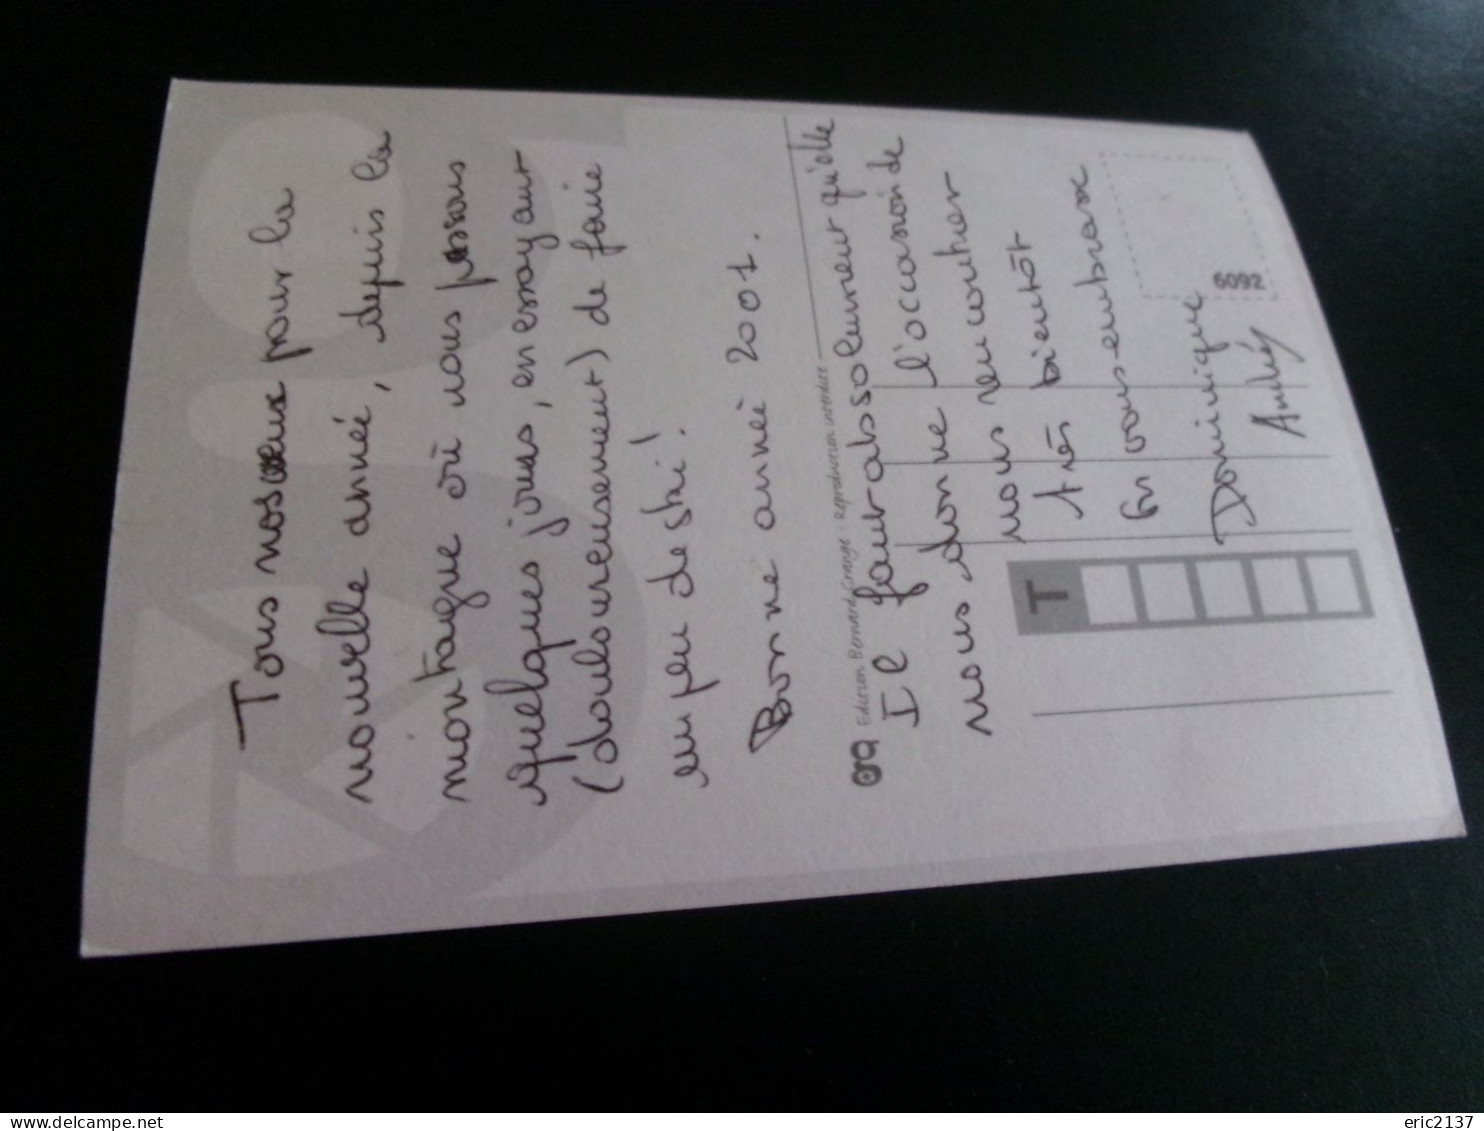 Tous nos vœux pour la
nouvelle année, depuis la
montagne où nous passons
quelques jours, en essayant
(douloureusement) de faire
un peu de ski!
Bonne année 2001.
Edition Bernard Grange - Reproduction interdite
Il faut absolument qu'elle
nous donne l'occasion de
nous rencontrer
A très bientôt
En vous embrasse
Dominique
André
6092
T
delcampe.net
eric2137